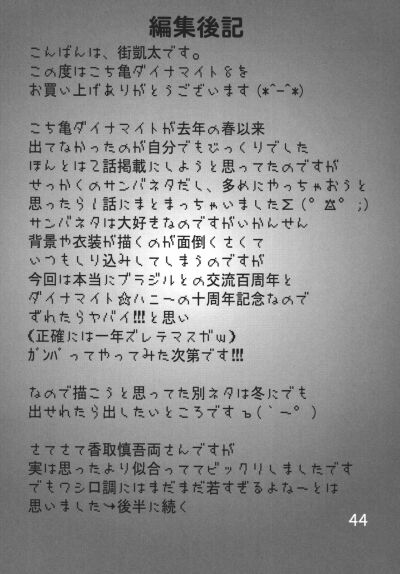 編集後記
こんばんは、街凱太です。
この度はこち亀ダイナマイト8を
お買い上げありがとうございます(*^-^*)
こち亀ダイナマイトが去年の春以来
出てなかったのが自分でもびっくりでした
ほんとは2話掲載にしようと思ってたのですが
せっかくのサンバネタだし、多めにやっちゃおうと
思ったら1話にまとまっちゃいましたΣ(°Д°;)
サンバネタは大好きなのですがいかんせん
背景や衣装が描くのが面倒くさくて
いつもしり込みしてしまうのですが
今回は本当にブラジルとの交流百周年と
ダイナマイト☆ハニーの十周年記念なので
ずれたらヤバイ!!!と思い
(正確には一年ズレテマスガw)
ガンバってやってみた次第です!!!
なので描こうと思ってた別ネタは冬にでも
出せれたら出したいところですъ(`ー°)
さてさて香取慎吾両さんですが
実は思ったより似合っててビックリしましたです
でもワシ口調にはまだまだ若すぎるよなーとは
思いました→後半に続く
44